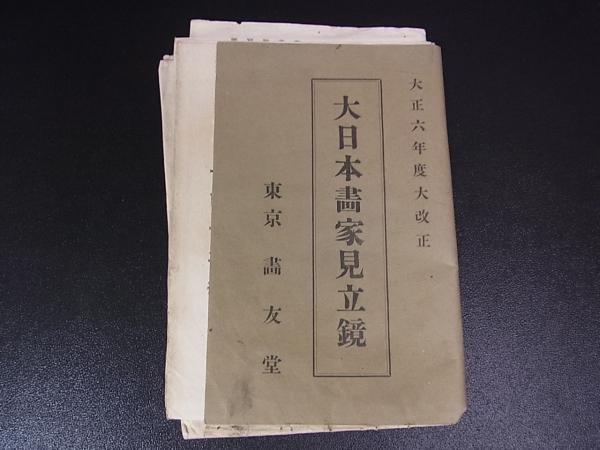 大正六年度大改正
大日本畵家見立鏡
東京畵友堂